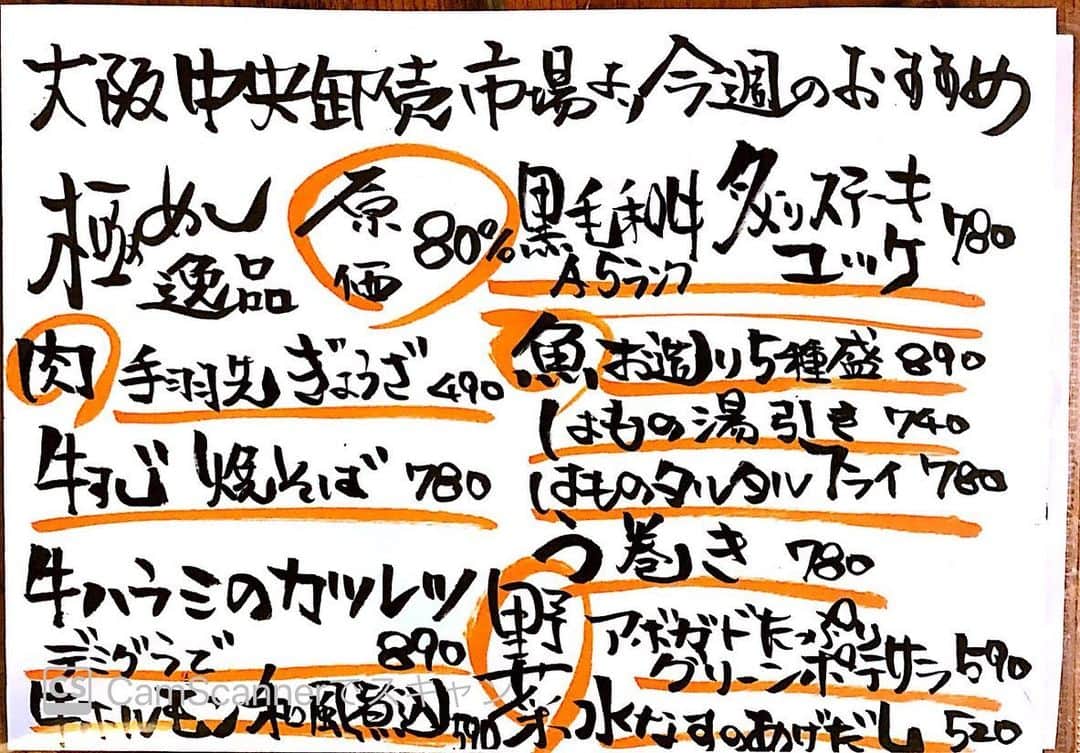 大阪中央卸売市場より今週のおすすめ
極めし
逸品
原価
80%
黒毛和牛
A5ランク
炙りステーキ
ユッケ
780
肉
手羽先ぎょうざ 490
牛すじ焼そば 780
牛ハラミのカツレツ
デミグラで 890
牛ホルモン和風煮込 590
魚
お造り5種盛 890
はもの湯引き 740
はものタルタルフライ 780
う巻き 780
野菜
アボガドたっぷり
グリーンポテサラ 590
水なすのあげだし 520
CS CamScannerでスキャン